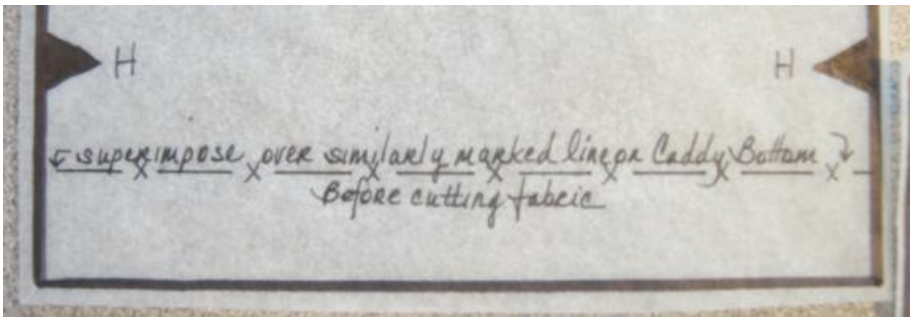 H H
superimpose over similarly marked line on Caddy Bottom
Before cutting fabric